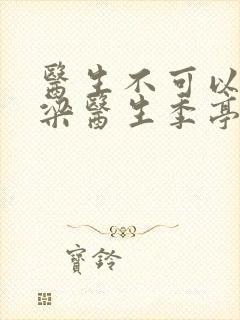 醫生不可以
梁醫生季亭
寶鈴